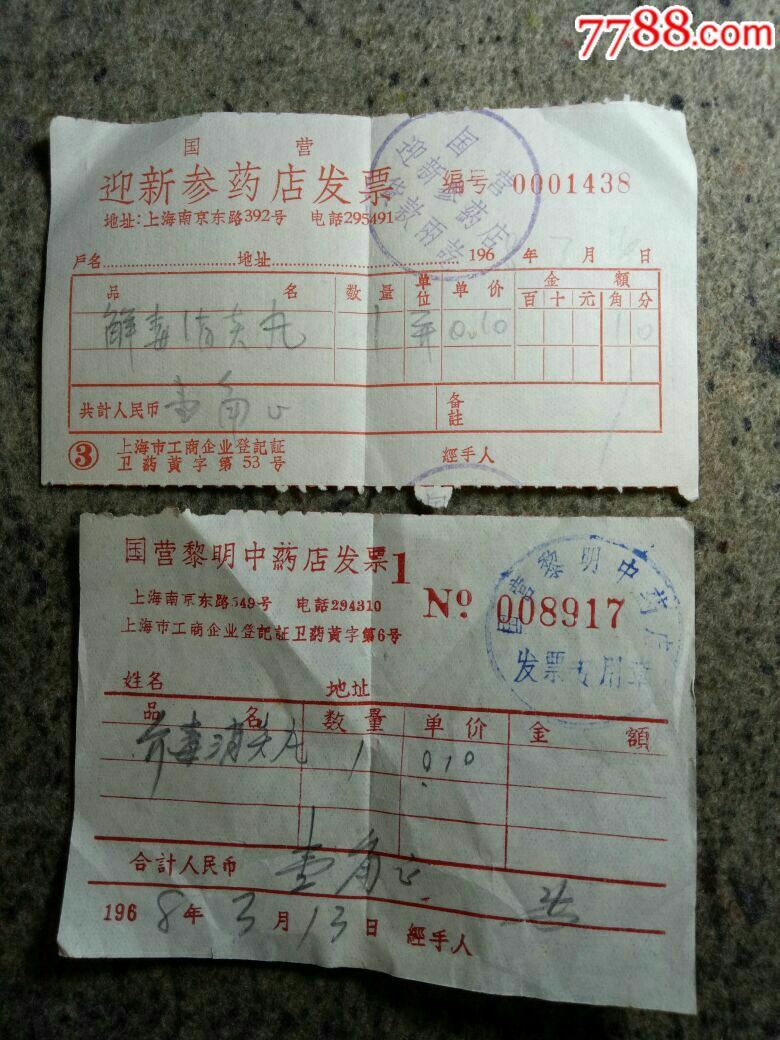 7788.com
国营
迎新参药店发票 编号 0001438
国营迎新参药店
货款兩訖
地址:上海南京东路392号 电話295491
戶名 地址 196 年 7 月 日
品名 数量 单位 单价 金額
百 十 元 角 分
解毒消炎丸 1 0.10 1 0
共計人民币 壹角正 备註
③ 上海市工商企业登記証
卫药黃字第53号 經手人
国
国营黎明中药店发票 1
国营黎明中药店
发票专用章
上海南京东路549号 电話294310 No 008917
上海市工商企业登記証卫药黃字第6号
姓名 地址
品名 数量 单价 金額
介毒消炎丸 1 0.10
合計人民币 壹角正
1968年3月13日 經手人